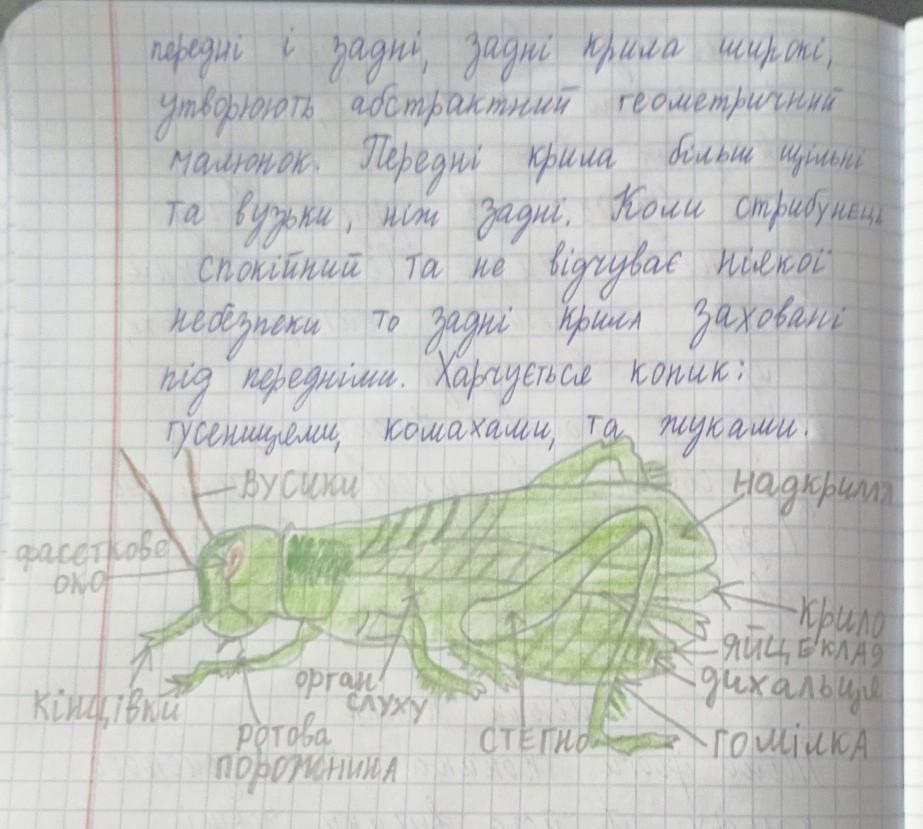 передні і задні, задні крила широкі,
утворюють абстрактний геометричний
малюнок. Передні крила більш щільні
та вузьки, ніж задні. Коли стрибунець
спокійний та не відчуває ніякої
небезпеки то задні крила заховані
під передніми. Харчується коник:
гусеницями, комахами, та жуками.
ВУСИКИ
НАДКРИЛЛЯ
фасеткове
око
КРИЛО
ЯЙЦЕКЛАД
ДИХАЛЬЦЯ
КІНЦІВКИ
ОРГАН
СЛУХУ
СТЕГНО
ГОМІЛКА
РОТОВА
ПОРОЖНИНА